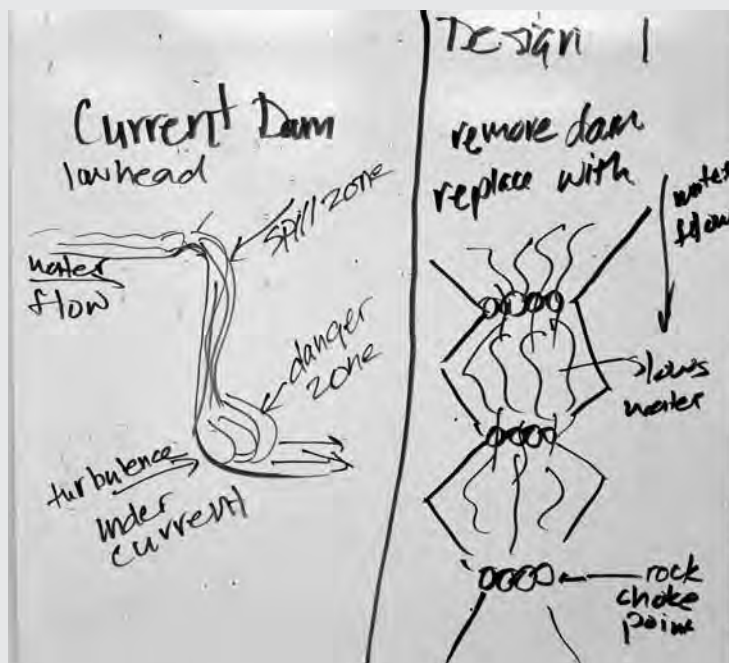 Current Dam
lowhead
spill zone
water
flow
danger
zone
turbulence
under
current
Design 1
remove dam
replace with
water
flow
slows
water
rock
choke
point